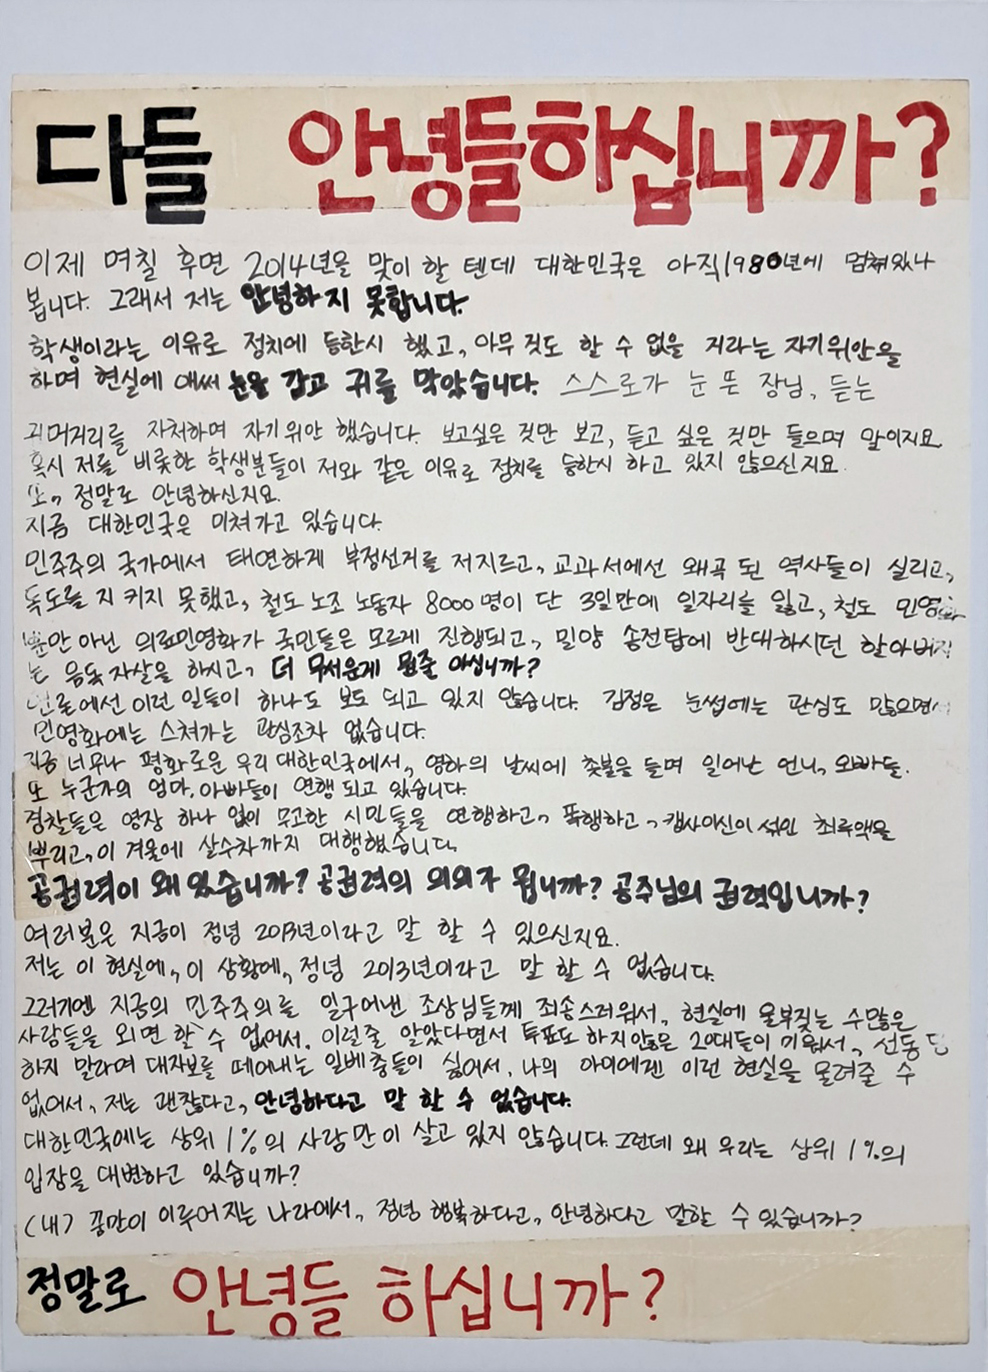 다들 안녕들하십니까?
이제 며칠 후면 2014년을 맞이 할 텐데 대한민국은 아직 1980년에 멈춰있나
봅니다. 그래서 저는 안녕하지 못합니다.
학생이라는 이유로 정치에 등한시 했고, 아무 것도 할 수 없을 거라는 자기위안을
하며 현실에 애써 눈을 감고 귀를 막았습니다. 스스로가 눈 뜬 장님, 듣는
귀머거리를 자처하며 자기위안 했습니다. 보고싶은 것만 보고, 듣고 싶은 것만 들으며 말이지요.
혹시 저를 비롯한 학생분들이 저와 같은 이유로 정치를 등한시 하고 있지 않으신지요.
또, 정말로 안녕하신지요.
지금 대한민국은 미쳐가고 있습니다.
민주주의 국가에서 태연하게 부정선거를 저지르고, 교과서에선 왜곡 된 역사들이 실리고,
독도를 지키지 못했고, 철도 노조 노동자 8000명이 단 3일만에 일자리를 잃고, 철도 민영화
뿐만 아닌 의료민영화가 국민들은 모르게 진행되고, 밀양 송전탑에 반대하시던 할아버지
는 음독자살을 하시고, 더 무서운게 뭔줄 아십니까?
언론에선 이런 일들이 하나도 보도 되고 있지 않습니다. 김정은 눈썹에는 관심도 많으면서
민영화에는 스쳐가는 관심조차 없습니다.
지금 너무나 평화로운 우리 대한민국에서, 영하의 날씨에 촛불을 들며 일어난 언니, 오빠들.
또 누군가의 엄마, 아빠들이 연행 되고 있습니다.
경찰들은 영장 하나 없이 무고한 시민들을 연행하고, 폭행하고, 캡사이신이 섞인 최루액을
뿌리고, 이 겨울에 살수차까지 대행했습니다.
공권력이 왜 있습니까? 공권력의 의의가 뭡니까? 공주님의 권력입니까?
여러분은 지금이 정녕 2013년이라고 말 할 수 있으신지요.
저는 이 현실에, 이 상황에, 정녕 2013년이라고 말 할 수 없습니다.
그러기엔 지금의 민주주의를 일구어낸 조상님들께 죄송스러워서, 현실에 울부짖는 수많은
사람들을 외면 할 수 없어서, 이럴줄 알았다면서 투표도 하지않은 20대들이 미워서, 선동 당
하지 말라며 대자보를 떼어내는 일베충들이 싫어서, 나의 아이에겐 이런 현실을 물려줄 수
없어서, 저는 괜찮다고, 안녕하다고 말 할 수 없습니다.
대한민국에는 상위 1%의 사람만이 살고 있지 않습니다. 그런데 왜 우리는 상위 1%의
입장을 대변하고 있습니까?
(내) 꿈만이 이루어지는 나라에서, 정녕 행복하다고, 안녕하다고 말할 수 있습니까?
정말로 안녕들 하십니까?